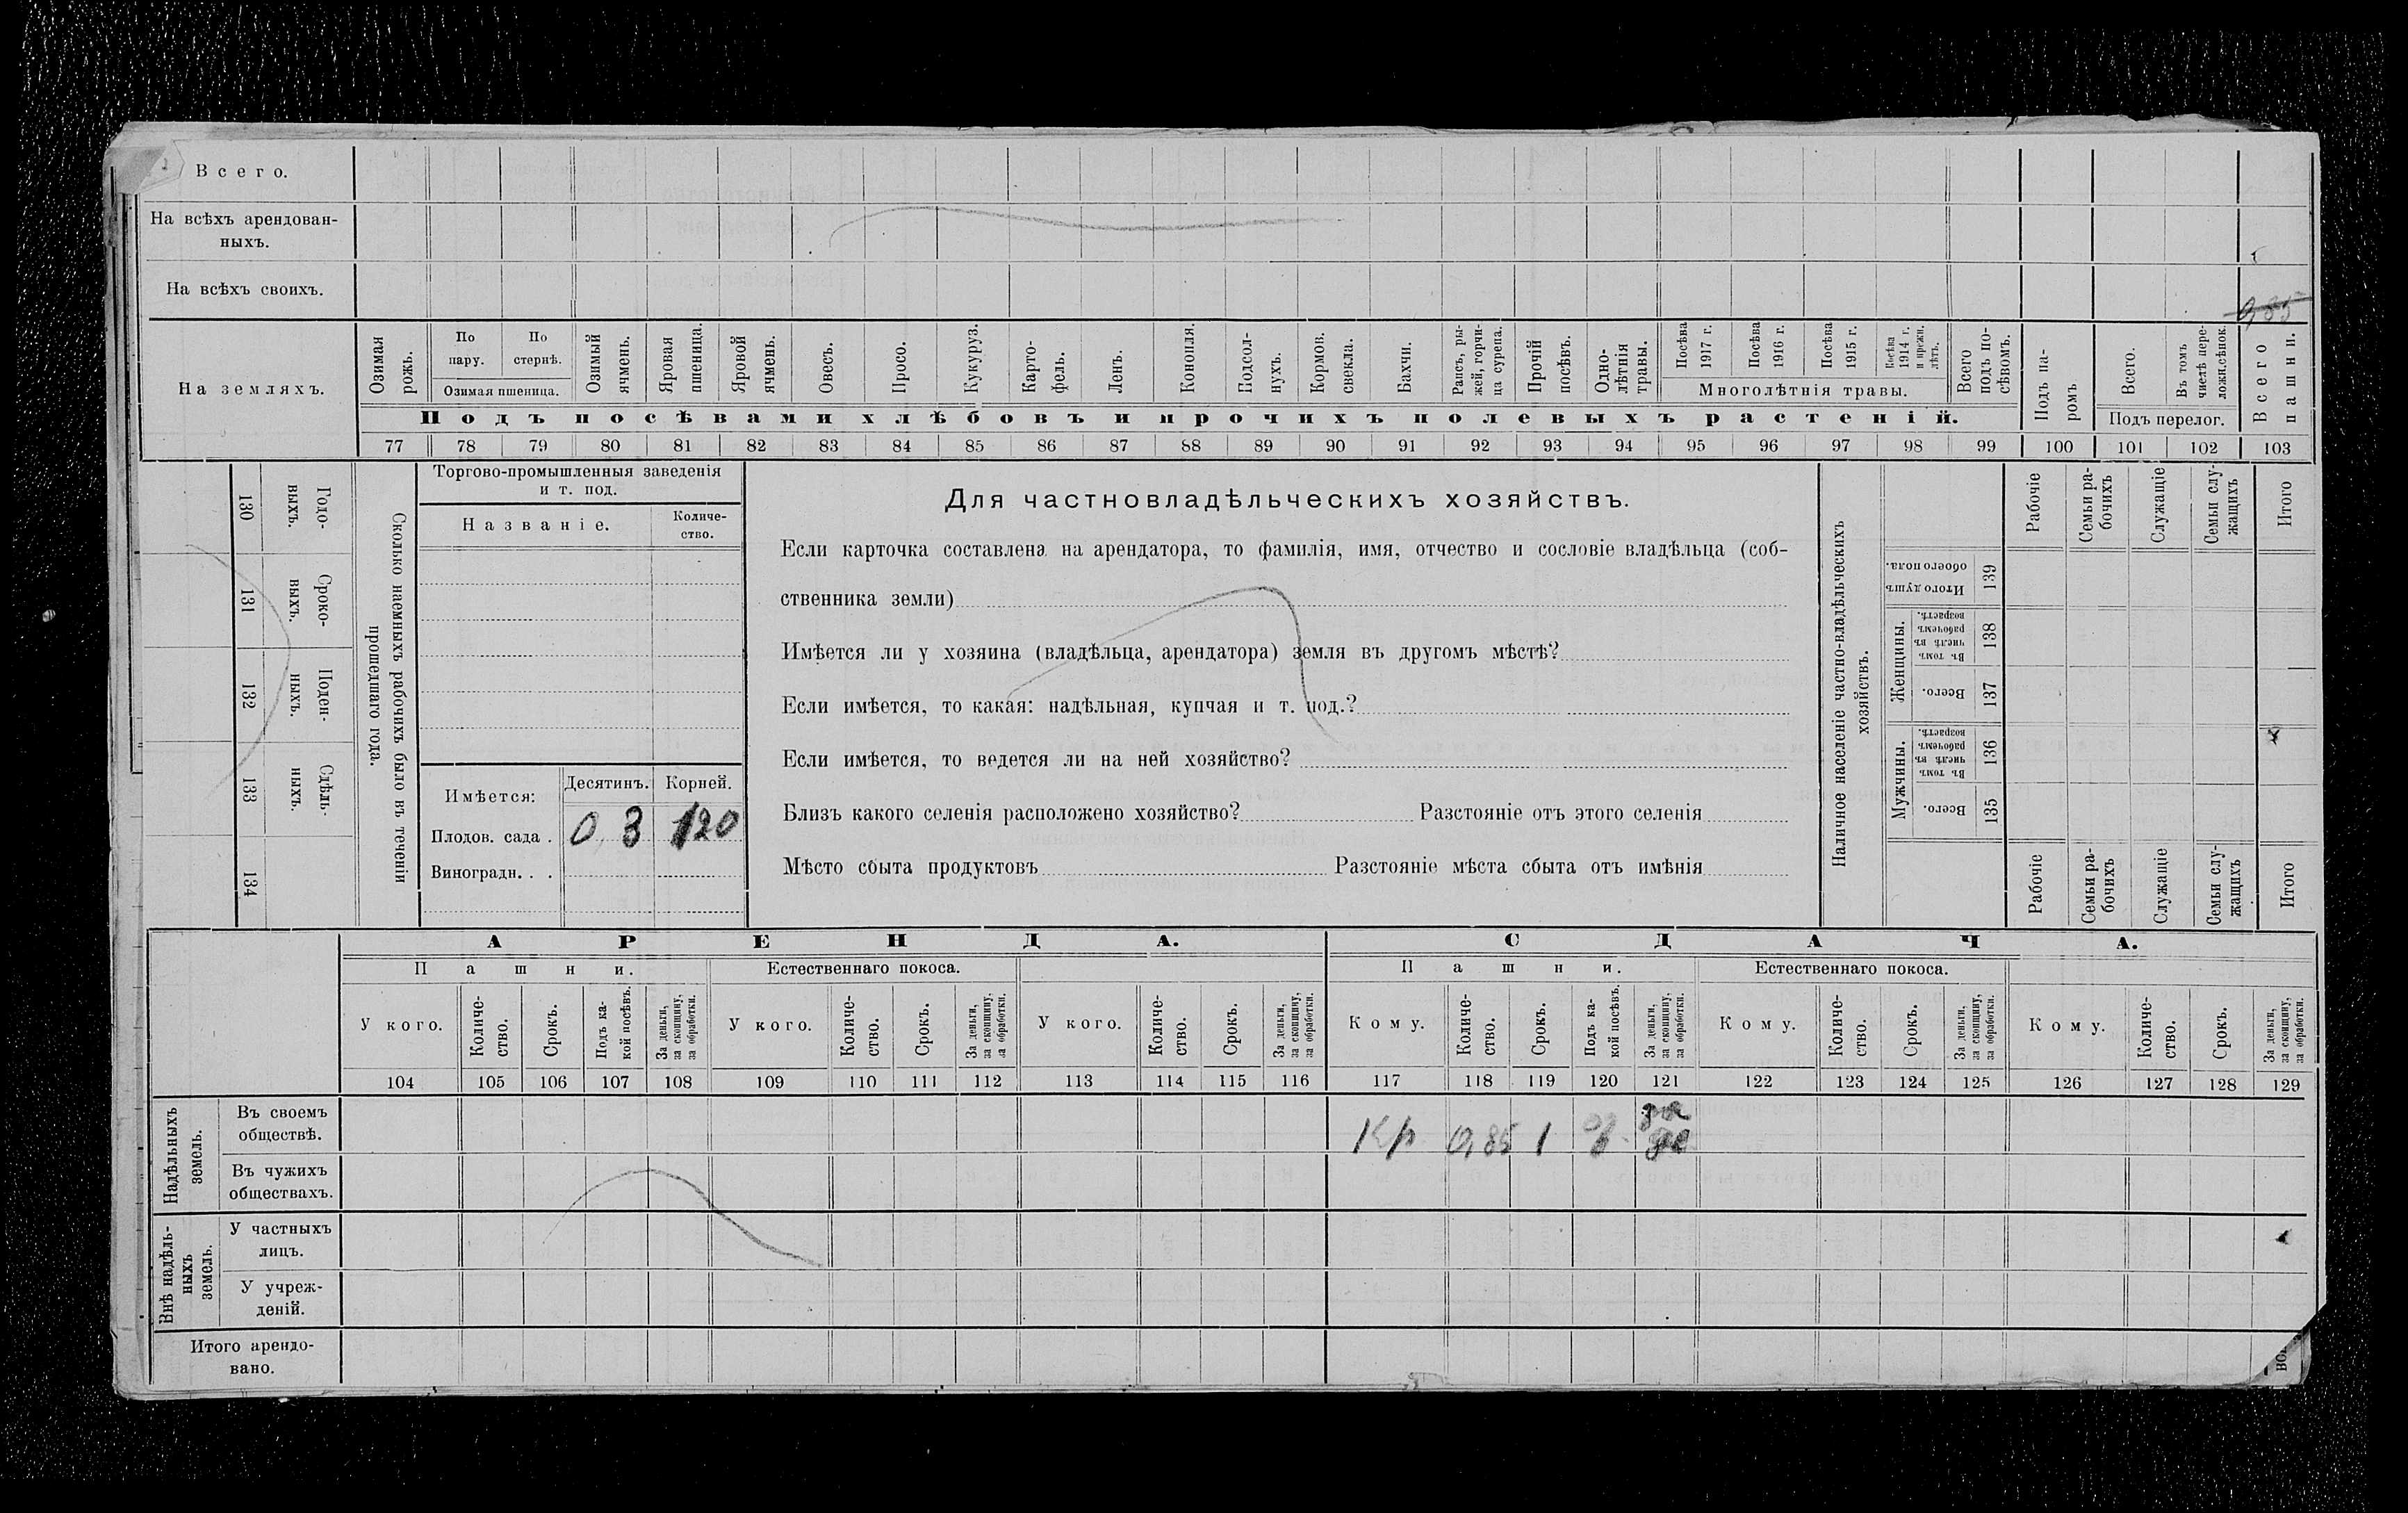 Всего.
На всѣхъ арендован-
ныхъ.
На всѣхъ своихъ.
0,85
На земляхъ.
Озимая рожь.
По пару.
По стернѣ.
Озимая пшеница.
Озимый ячмень.
Яровая пшеница.
Яровой ячмень.
Овесъ.
Просо.
Кукуруз.
Карто-
фель.
Ленъ.
Конопля.
Подсол-
нухъ.
Кормов. свекла.
Бахчи.
Рапсъ, ры-
жей, горчи-
ца сурепа.
Прочій посѣвъ.
Одно-
лѣтнія травы.
Посѣва 1917 г.
Посѣва 1916 г.
Посѣва 1915 г.
Посѣва 1914 г. и прежн. лѣтъ.
Многолѣтнія травы.
Всего подъ по-
сѣвомъ.
Подъ посѣвами хлѣбовъ и прочихъ полевыхъ растеній.
Подъ па-
ромъ
Всего.
Въ томъ числѣ пере-
ложн.сѣнок.
Подъ перелог.
Всего пашни.
77 78 79 80 81 82 83 84 85 86 87 88 89 90 91 92 93 94 95 96 97 98 99 100 101 102 103
Сколько наемныхъ рабочихъ было въ теченіи
прошедшаго года.
Годо-
выхъ.
130
Сроко-
выхъ.
131
Поден-
ныхъ.
132
Сдѣль-
ныхъ.
133
134
Торгово-промышленныя заведенія
и т. под.
Названіе.
Количе-
ство.
Имѣется:
Десятинъ.
Корней.
Плодов. сада . 0,3 120
Виноградн. . .
Для частновладѣльческихъ хозяйствъ.
Если карточка составлена на арендатора, то фамилія, имя, отчество и сословіе владѣльца (соб-
ственника земли)
Имѣется ли у хозяина (владѣльца, арендатора) земля въ другомъ мѣстѣ?
Если имѣется, то какая: надѣльная, купчая и т. под.?
Если имѣется, то ведется ли на ней хозяйство?
Близъ какого селенія расположено хозяйство? Разстояніе отъ этого селенія
Мѣсто сбыта продуктовъ Разстояніе мѣста сбыта отъ имѣнія
Наличное населеніе частно-владѣльческихъ
хозяйствъ.
Рабочіе
Семьи ра-
бочихъ
Служащіе
Семьи слу-
жащихъ
Итого
Итого душъ
обоего пола.
139
Женщины.
Въ томъ
числѣ въ
рабочемъ
возрастѣ.
138
Всего.
137
Мужчины.
Въ томъ
числѣ въ
рабочемъ
возрастѣ.
136
Всего.
135
Рабочіе
Семьи ра-
бочихъ
Служащіе
Семьи слу-
жащихъ
Итого
АРЕНДА.
СДАЧА.
Пашни.
Естественнаго покоса.
Пашни.
Естественнаго покоса.
У кого.
Количе-
ство.
Срокъ.
Подъ ка-
кой посѣвъ.
За деньги,
за скопщину,
за обработки.
У кого.
Количе-
ство.
Срокъ.
За деньги,
за скопщину,
за обработки.
У кого.
Количе-
ство.
Срокъ.
За деньги,
за скопщину,
за обработки.
Кому.
Количе-
ство.
Срокъ.
Подъ ка-
кой посѣвъ.
За деньги,
за скопщину,
за обработки.
Кому.
Количе-
ство.
Срокъ.
За деньги,
за скопщину,
за обработки.
Кому.
Количе-
ство.
Срокъ.
За деньги,
за скопщину,
за обработки.
104 105 106 107 108 109 110 111 112 113 114 115 116 117 118 119 120 121 122 123 124 125 126 127 128 129
Надѣльныхъ
земель.
Въ своемъ
обществѣ.
Кр 0,85 1 за
Въ чужихъ
обществахъ.
Внѣ надѣль-
ныхъ
земель.
У частныхъ
лицъ.
У учреж-
деній.
Итого арендо-
вано.